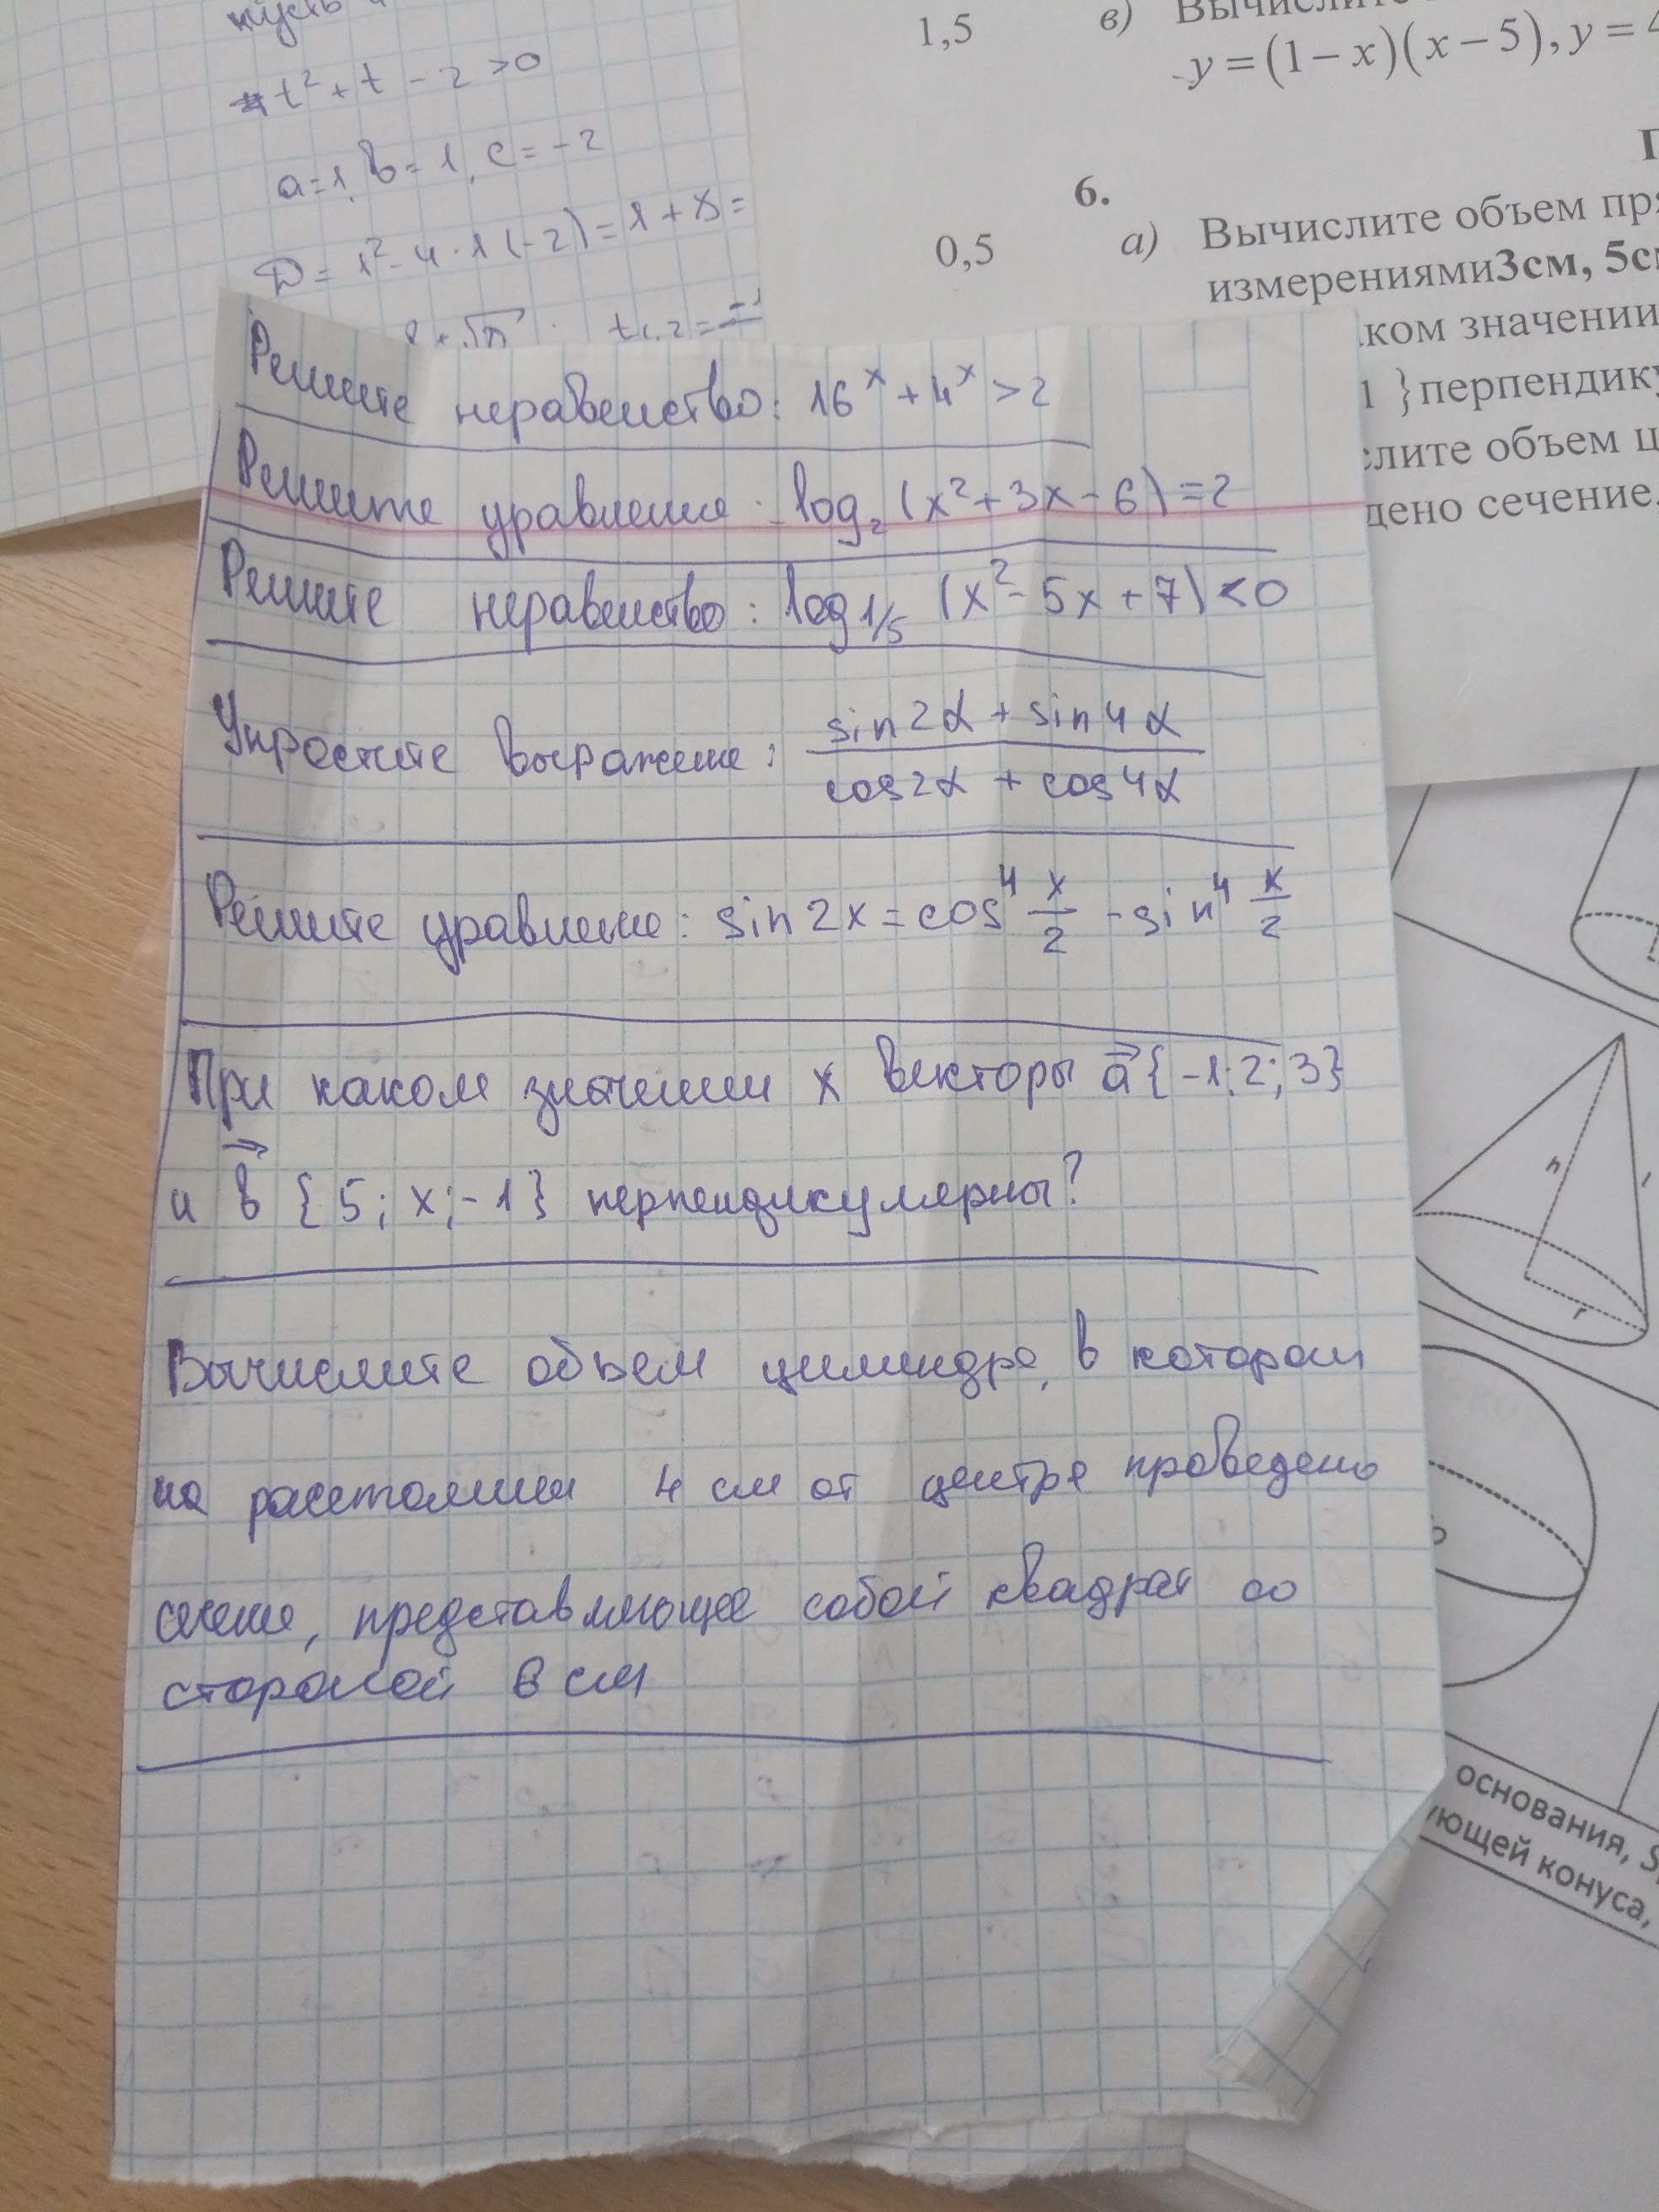 пусть
t² + t - 2 > 0
a=1, b=1, c=-2
D = 1² - 4 · 1 (-2) = 1 + 8 =
t1,2 =
1,5
в)
y = (1 – x)(x – 5), y = 4
6.
0,5
а) Вычислите объем
измерениями 3см, 5с
значении
1 } перпендику
объем ц
сечение
Решите неравенство: 16ˣ + 4ˣ > 2
Решите уравнение: log₂ (x² + 3x - 6) = 2
Решите неравенство: log 1/5 (x² - 5x + 7) < 0
Упростите выражение: (sin2α + sin4α) / (cos2α + cos4α)
Решите уравнение: sin2x = cos⁴ x/2 - sin⁴ x/2
При каком значении x векторы a⃗ {-1; 2; 3}
и b⃗ {5; x; -1} перпендикулярны?
Вычислите объем цилиндра, в котором
на расстоянии 4 см от центра проведено
сечение, представляющее собой квадрат со
стороной 6 см
h
l
r
основания, S
ющей конуса,